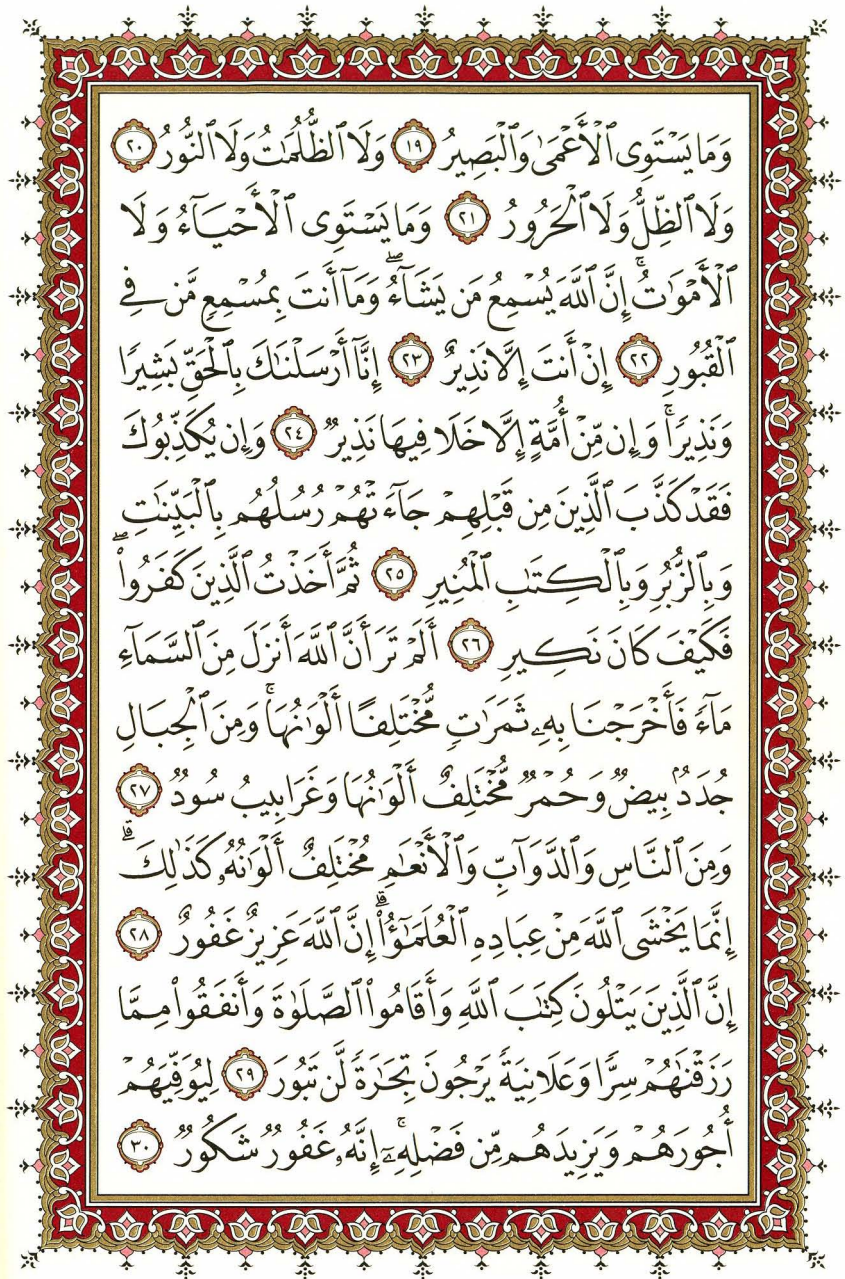 وَمَا يَسۡتَوِي ٱلۡأَعۡمَىٰ وَٱلۡبَصِيرُ ١٩ وَلَا ٱلظُّلُمَٰتُ وَلَا ٱلنُّورُ ٢٠
وَلَا ٱلظِّلُّ وَلَا ٱلۡحَرُورُ ٢١ وَمَا يَسۡتَوِي ٱلۡأَحۡيَآءُ وَلَا
ٱلۡأَمۡوَٰتُۚ إِنَّ ٱللَّهَ يُسۡمِعُ مَن يَشَآءُۖ وَمَآ أَنتَ بِمُسۡمِعٖ مَّن فِي
ٱلۡقُبُورِ ٢٢ إِنۡ أَنتَ إِلَّا نَذِيرٌ ٢٣ إِنَّآ أَرۡسَلۡنَٰكَ بِٱلۡحَقِّ بَشِيرٗا
وَنَذِيرٗاۚ وَإِن مِّنۡ أُمَّةٍ إِلَّا خَلَا فِيهَا نَذِيرٞ ٢٤ وَإِن يُكَذِّبُوكَ
فَقَدۡ كَذَّبَ ٱلَّذِينَ مِن قَبۡلِهِمۡ جَآءَتۡهُمۡ رُسُلُهُم بِٱلۡبَيِّنَٰتِ
وَبِٱلزُّبُرِ وَبِٱلۡكِتَٰبِ ٱلۡمُنِيرِ ٢٥ ثُمَّ أَخَذۡتُ ٱلَّذِينَ كَفَرُواْۖ
فَكَيۡفَ كَانَ نَكِيرِ ٢٦ أَلَمۡ تَرَ أَنَّ ٱللَّهَ أَنزَلَ مِنَ ٱلسَّمَآءِ
مَآءٗ فَأَخۡرَجۡنَا بِهِۦ ثَمَرَٰتٖ مُّخۡتَلِفًا أَلۡوَٰنُهَاۚ وَمِنَ ٱلۡجِبَالِ
جُدَدُۢ بِيضٞ وَحُمۡرٞ مُّخۡتَلِفٌ أَلۡوَٰنُهَا وَغَرَابِيبُ سُودٞ ٢٧
وَمِنَ ٱلنَّاسِ وَٱلدَّوَآبِّ وَٱلۡأَنۡعَٰمِ مُخۡتَلِفٌ أَلۡوَٰنُهُۥ كَذَٰلِكَۗ
إِنَّمَا يَخۡشَى ٱللَّهَ مِنۡ عِبَادِهِ ٱلۡعُلَمَٰٓؤُاْۗ إِنَّ ٱللَّهَ عَزِيزٌ غَفُورٌ ٢٨
إِنَّ ٱلَّذِينَ يَتۡلُونَ كِتَٰبَ ٱللَّهِ وَأَقَامُواْ ٱلصَّلَوٰةَ وَأَنفَقُواْ مِمَّا
رَزَقۡنَٰهُمۡ سِرّٗا وَعَلَانِيَةٗ يَرۡجُونَ تِجَٰرَةٗ لَّن تَبُورَ ٢٩ لِيُوَفِّيَهُمۡ
أُجُورَهُمۡ وَيَزِيدَهُم مِّن فَضۡلِهِۦٓۚ إِنَّهُۥ غَفُورٞ شَكُورٞ ٣٠